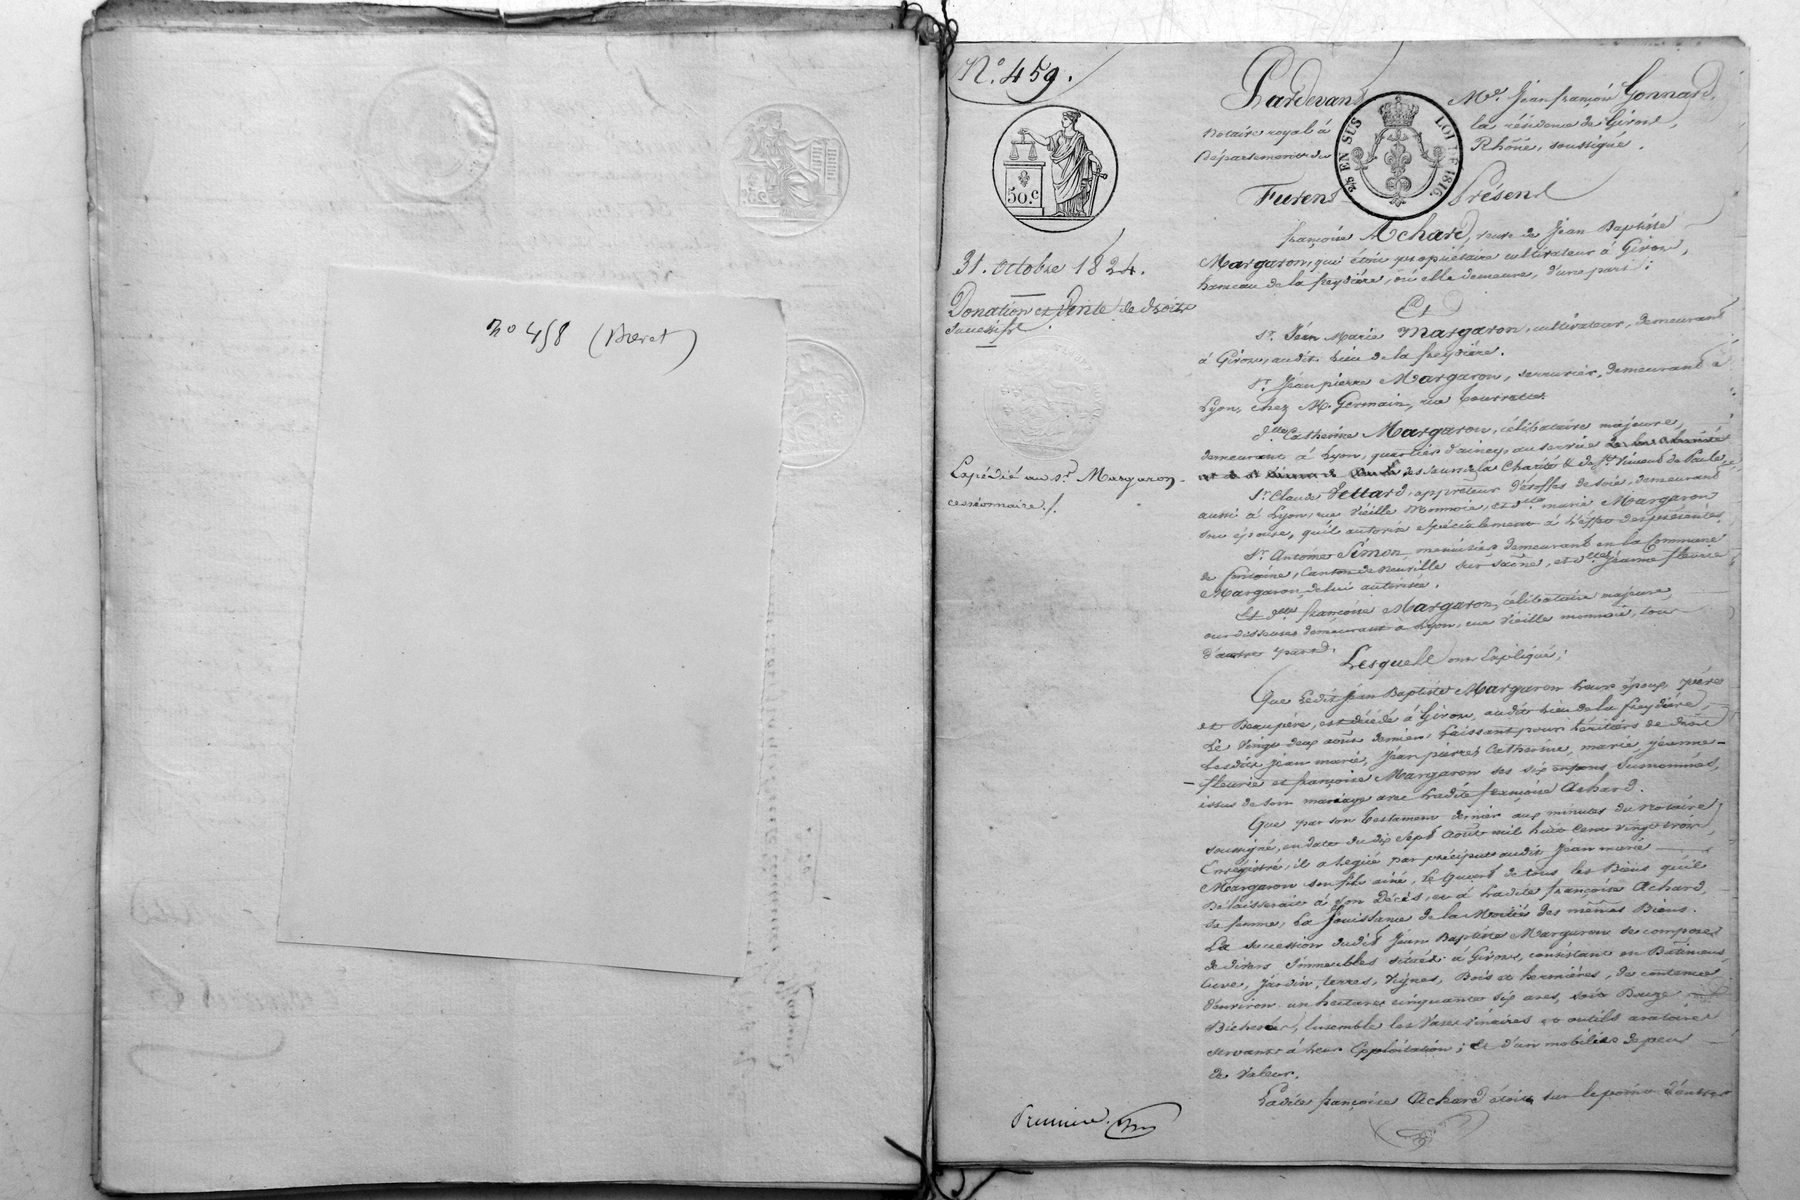 n.o 458 (Brevet)
N.o 459.
50.c
31. octobre 1824.
Donation et Vente de droits
successifs.
Expédié au Sr. Margaron
cessionnaire ./.
Première.
Pardevant Me. Jean françois Gonnard,
Notaire royal à la résidence de Girons,
Département du Rhône, soussigné.
25 EN SUS LOI DE 1816.
Furent Présens
françoise Achard, veuve de Jean Baptiste
Margaron, qui étoit propriétaire cultivateur à Giron,
hameau de la freydière, où elle demeure, d'une part;
Et
Sr. Jean Marie Margaron, cultivateur, demeurant
à Giron, audit lieu de la freydière.
Sr. Jean pierre Margaron, serrurier, demeurant à
Lyon, chez M. Germain, rue
dlle Catherine Margaron, célibataire majeure,
demeurant à Lyon, quartier d'ainay, au service
des Sœurs de la Charité de St. Vincent de Paule
Sr. Claude Vettard, apprêteur d'étoffes de soie, demeurant
aussi à Lyon, rue Vieille Monnoie, et dlle marie Margaron
son épouse, qu'il autorise spécialement à l'effet des présentes.
Sr. Antoine Simon, menuisier demeurant en la Commune
de fontaine, Canton de Neuville sur Saône, et dlle Jeanne fleurie
Margaron, de lui autorisée.
Et dlle françoise Margaron, célibataire majeure,
ourdisseuse demeurant à Lyon, rue Vieille monnoie, tous
d'autre part.
Lesquels ont Expliqué;
Que ledit Jean Baptiste Margaron leur époux, père
et Beaupère, est décédé à Giron, audit lieu de la freydière,
le vingt deux août dernier, laissant pour héritiers de droit
lesdits Jean marie, Jean pierre, Catherine, marie, jeanne-
fleurie et françoise Margaron ses six enfans susnommés,
issus de son mariage avec ladite françoise Achard.
Que par son testament dernier aux minutes du Notaire
soussigné, en date du dix sept août mil huit cent vingt trois,
Enregistré, il a légué par préciput audit Jean marie
Margaron son fils ainé, le Quart de tous les Biens qu'il
délaisseroit à son décès, et à ladite françoise Achard,
sa femme, la Jouissance de la Moitié des mêmes Biens.
La succession dudit Jean Baptiste Margaron se compose
de divers Immeubles situés à Girons, consistant en Bâtimens,
cuve, jardin, terres, Vignes, Bois et hermières, de contenue
d'environ un hectare cinquante six ares, soit Douze
Bicherées, Ensemble les Vases vinaires et outils aratoires
servants à leur Exploitation; Et d'un mobilier de peu
de valeur.
Ladite françoise Achard étoit sur le point d'entrer